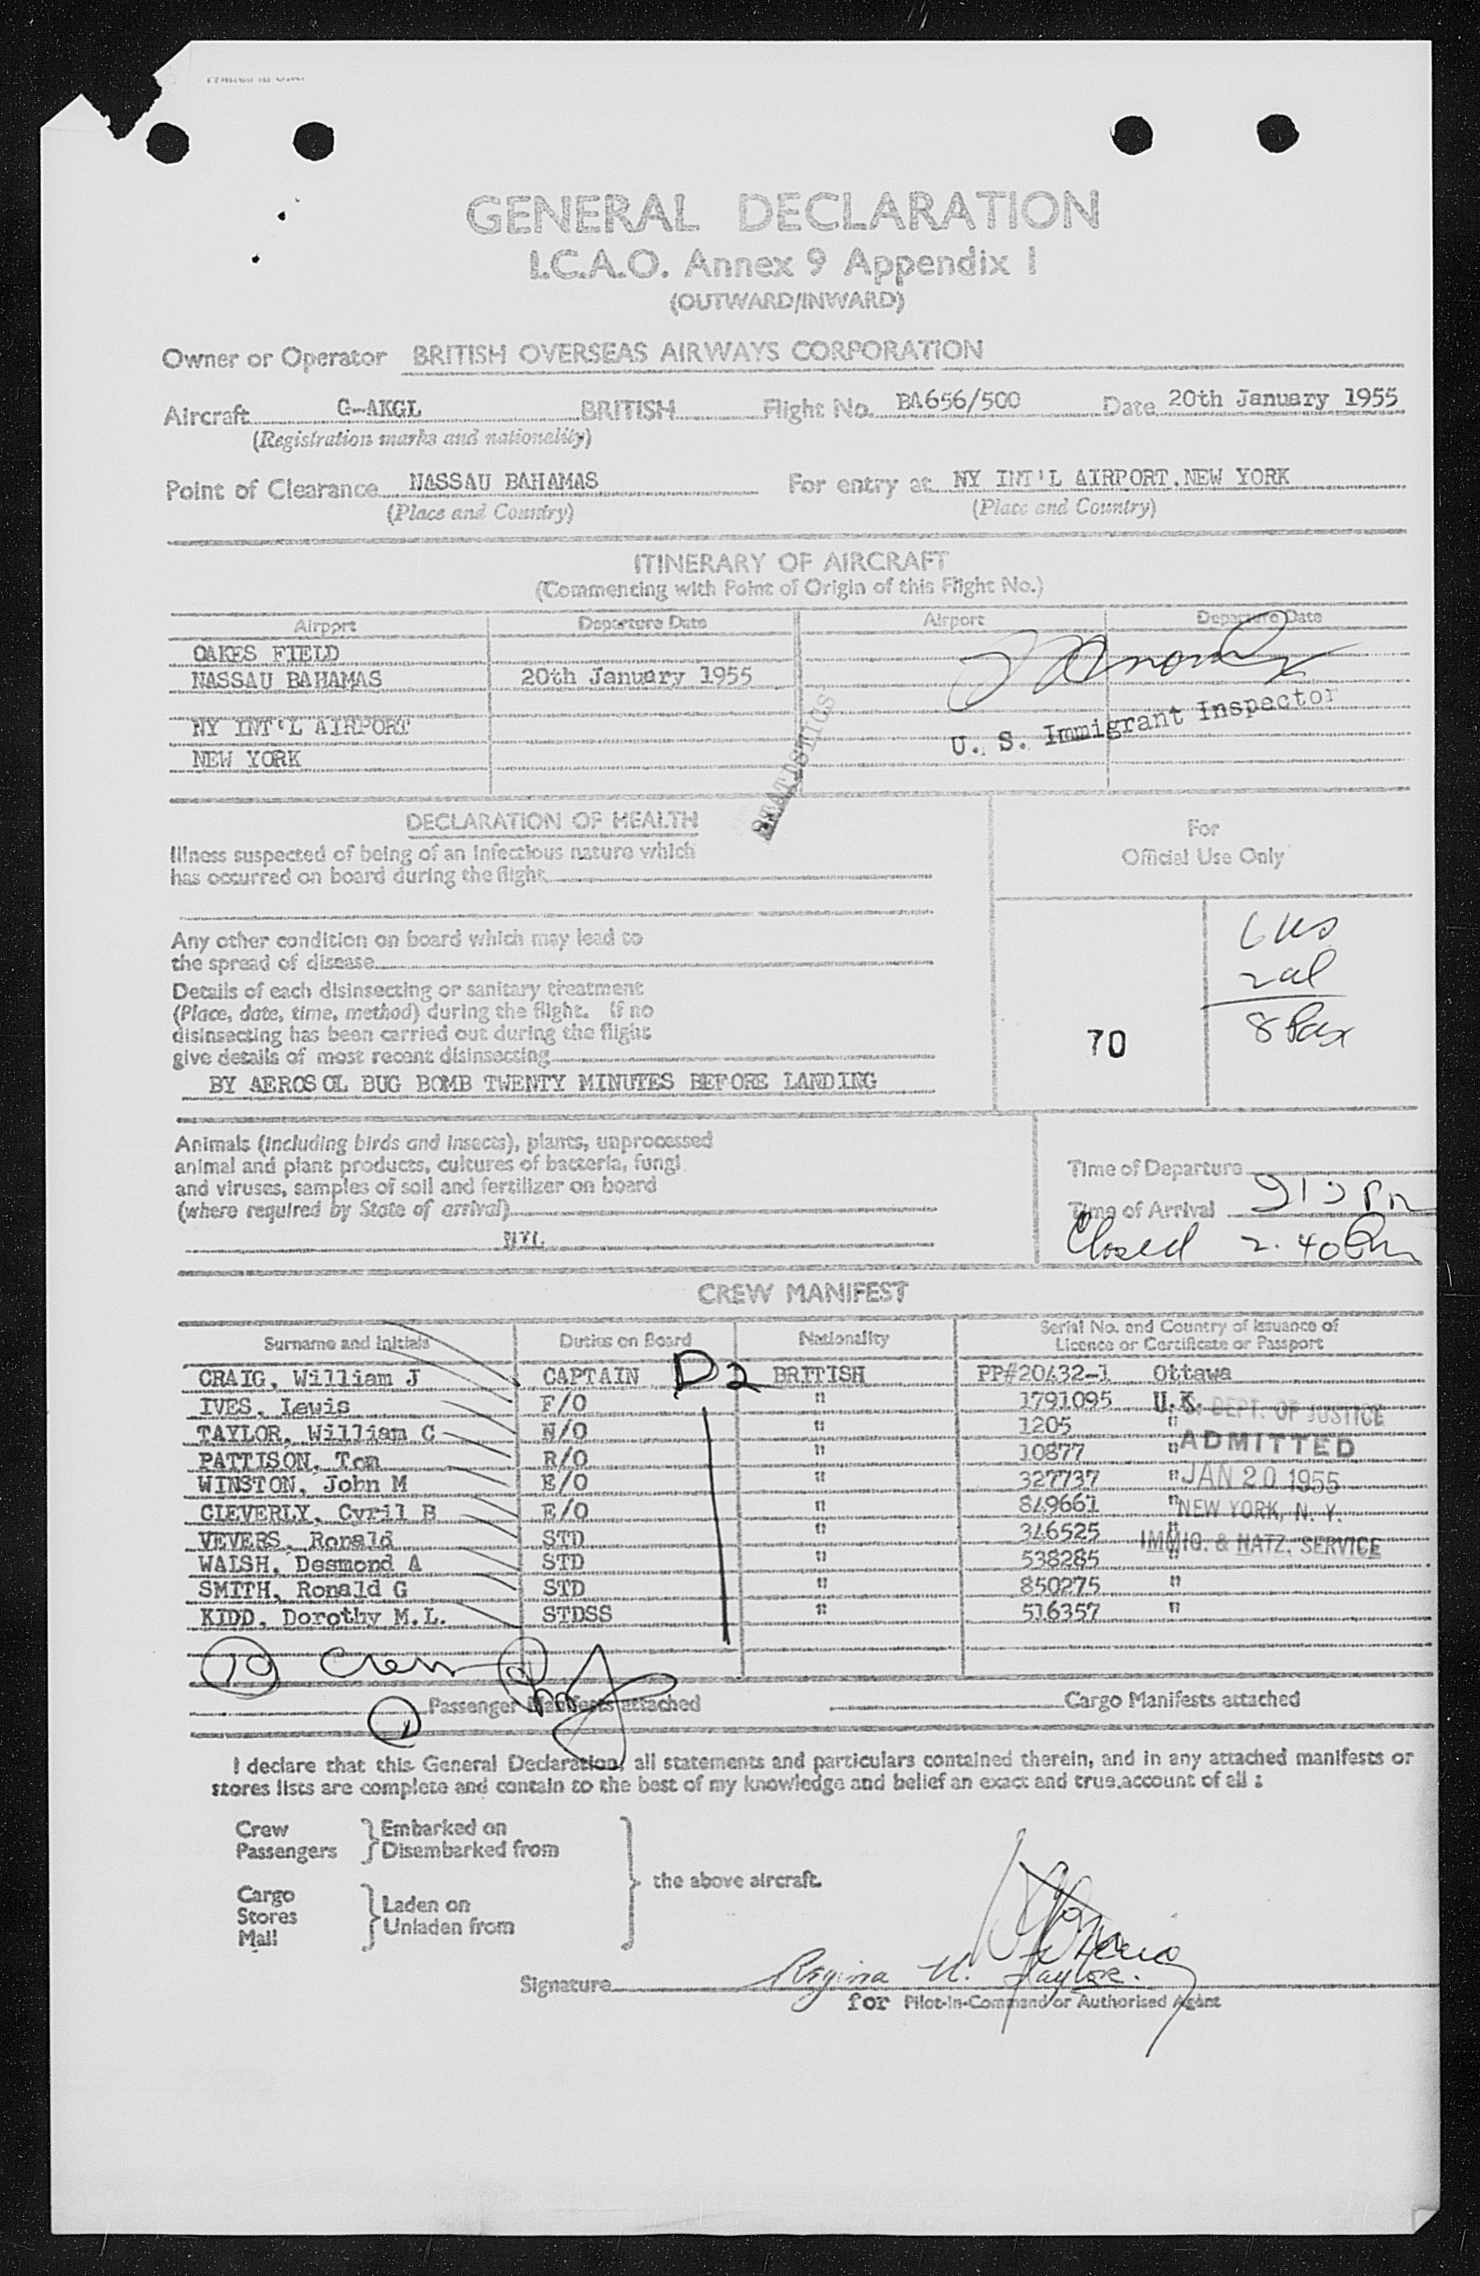 GENERAL DECLARATION
I.C.A.O. Annex 9 Appendix 1
(OUTWARD/INWARD)
Owner or Operator BRITISH OVERSEAS AIRWAYS CORPORATION
Aircraft G-AKGL BRITISH Flight No. BA656/500 Date 20th January 1955
(Registration marks and nationality)
Point of Clearance NASSAU BAHAMAS For entry at NY INT'L AIRPORT.NEW YORK
(Place and Country) (Place and Country)
ITINERARY OF AIRCRAFT
(Commencing with Point of Origin of this Flight No.)
Airport Departure Date Airport Departure Date
OAKES FIELD
NASSAU BAHAMAS 20th January 1955
NY INT'L AIRPORT
U. S. Immigrant Inspector
NEW YORK
STATISTICS
DECLARATION OF HEALTH
For
Official Use Only
Illness suspected of being of an infectious nature which
has occurred on board during the flight
Any other condition on board which may lead to
the spread of disease
Details of each disinsecting or sanitary treatment
(Place, date, time, method) during the flight. If no
disinsecting has been carried out during the flight
give details of most recent disinsecting
BY AEROSOL BUG BOMB TWENTY MINUTES BEFORE LANDING
70
6 us
2 al
8 Pax
Animals (including birds and insects), plants, unprocessed
animal and plant products, cultures of bacteria, fungi
and viruses, samples of soil and fertilizer on board
(where required by State of arrival)
NIL
Time of Departure
Time of Arrival
Closed 2.40 Pm
CREW MANIFEST
Surname and Initials Duties on Board Nationality Serial No. and Country of Issuance of
Licence or Certificate or Passport
CRAIG, William J CAPTAIN D2 BRITISH PP#20432-1 Ottawa
IVES, Lewis F/O " 1791095 U.K.
TAYLOR, William C N/O " 1205 "
PATTISON, Tom R/O " 10877 "
WINSTON, John M E/O " 327737 "
CLEVERLY, Cyril B E/O " 849661 "
VEVERS, Ronald STD " 346525 "
WALSH, Desmond A STD " 538285 "
SMITH, Ronald G STD " 850275 "
KIDD, Dorothy M.L. STDSS " 516357 "
DEPT. OF JUSTICE
ADMITTED
JAN 20 1955
NEW YORK, N. Y.
IMMIG. & NATZ. SERVICE
10 Crew
1 Passenger Manifests attached Cargo Manifests attached
I declare that this General Declaration, all statements and particulars contained therein, and in any attached manifests or
stores lists are complete and contain to the best of my knowledge and belief an exact and true account of all :
Crew Embarked on
Passengers Disembarked from
the above aircraft.
Cargo Laden on
Stores Unladen from
Mail
Signature Regina U. Taylor.
for Pilot-in-Command or Authorised Agent